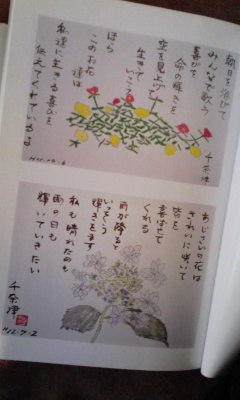 朝日を浴びて
みんなで歌う
喜びを
命の輝きを
空を見上げて
生きて
いこう
ほら
このお花
達は
私達に生きる喜びを
伝えてくれているよ
千奈津
あじさいの花は
きれいに咲いて
皆を
喜ばせて
くれる
雨が降ると
いっそう
輝きをます
私も晴れた日も
雨の日も
輝いていきたい
千奈津